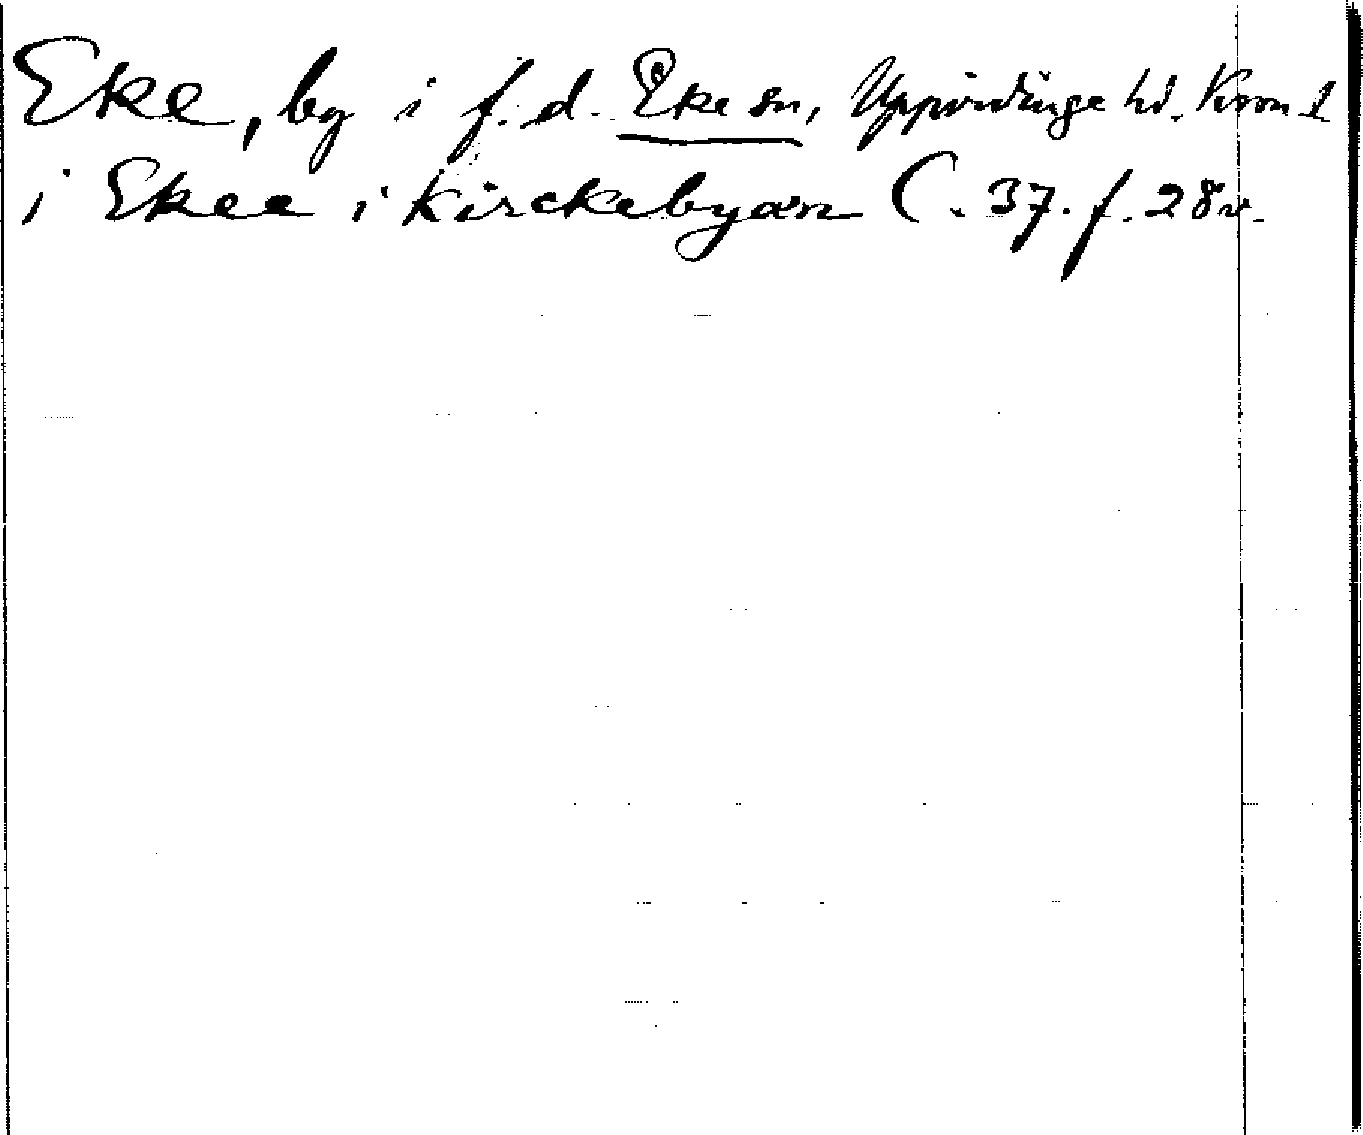 Eke, by i f.d. Eke sn, Uppvidinge hd. Kron. l
i Ekee i Kirckebyæn C. 37. f. 28v.